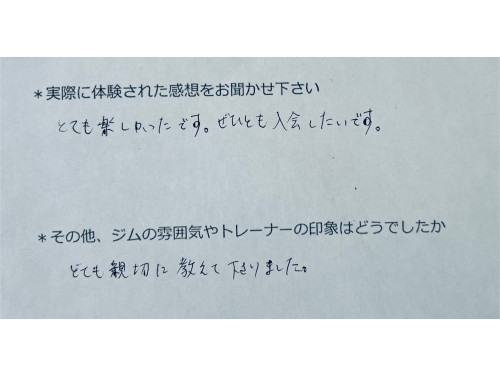 *実際に体験された感想をお聞かせ下さい
とても楽しかったです。ぜひとも入会したいです。
*その他、ジムの雰囲気やトレーナーの印象はどうでしたか
とても親切に教えて下さりました。